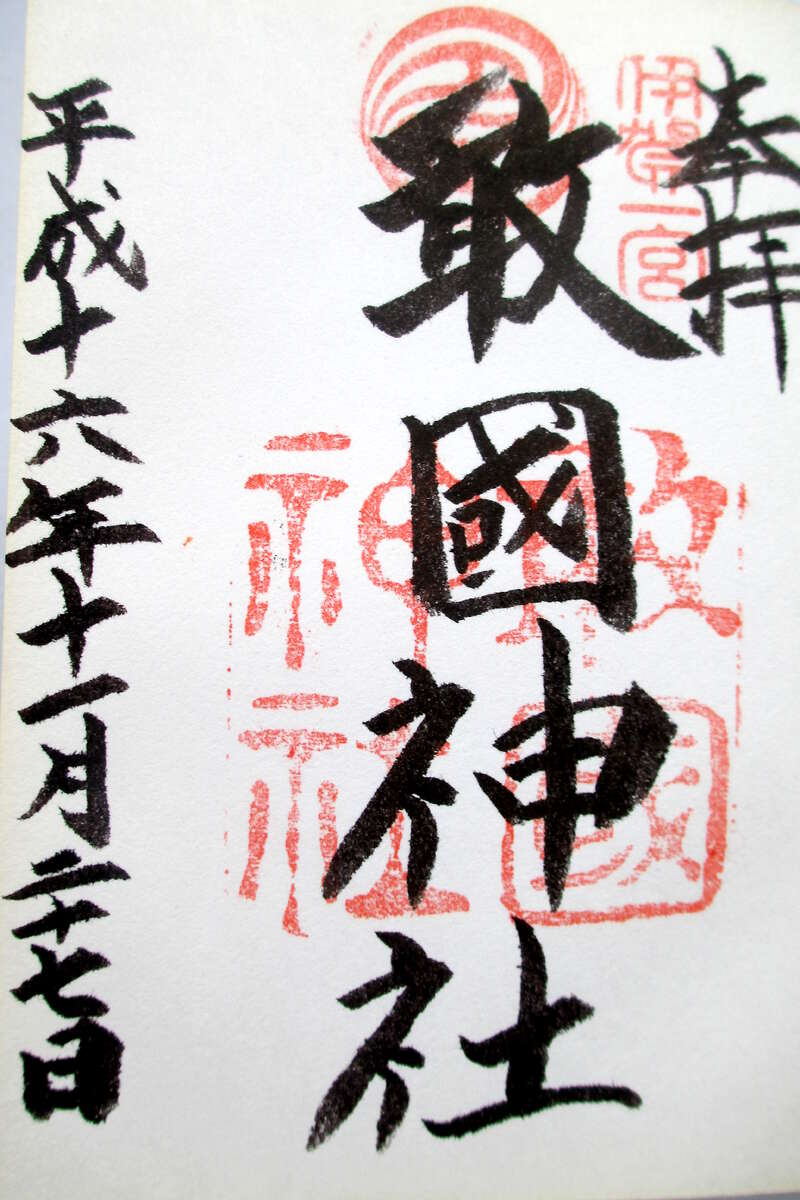 奉拝
伊賀一宮
敢國神社
敢國神社
平成十六年十一月二十七日